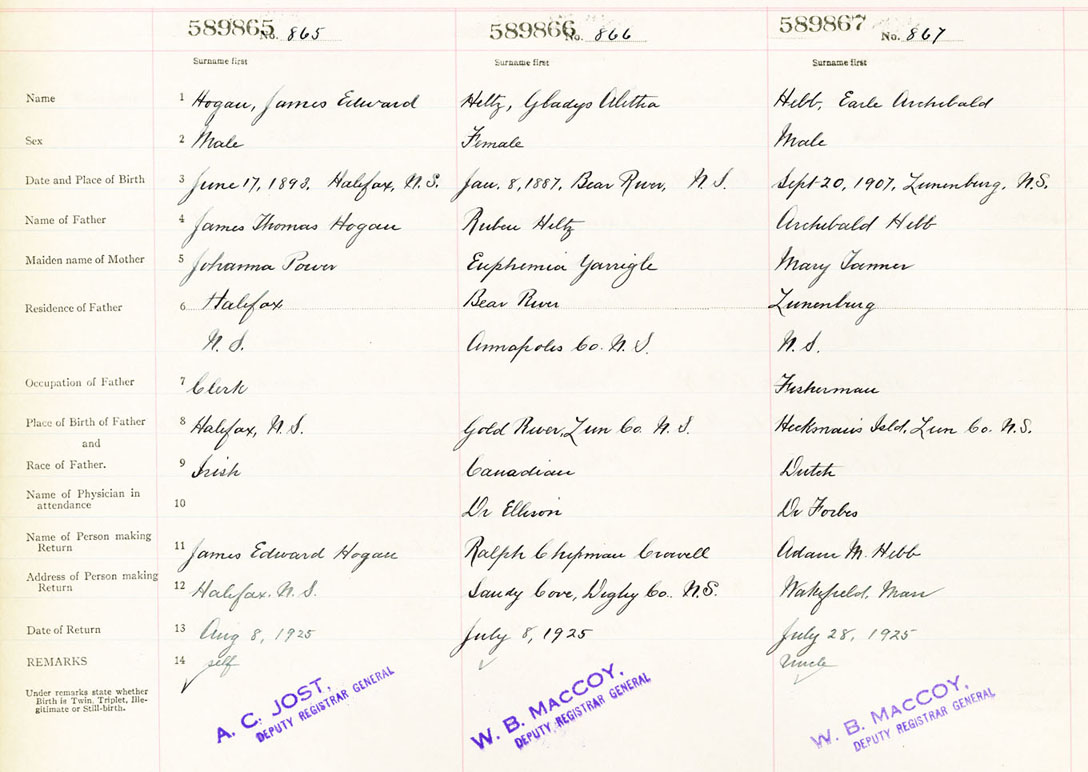 589865 No. 865 589866 No. 866 589867 No. 867
Surname first Surname first Surname first
Name 1 Hogan, James Edward Hiltz, Gladys Aletha Hebb, Earle Archibald
Sex 2 Male Female Male
Date and Place of Birth 3 June 17, 1893. Halifax, N.S. Jan. 8, 1887, Bear River, N S. Sept 20, 1907, Lunenburg, N.S.
Name of Father 4 James Thomas Hogan Ruben Hiltz Archibald Hebb
Maiden name of Mother 5 Johanna Power Euphemia Yarrigle Mary Tanner
Residence of Father 6 Halifax Bear River Lunenburg
N. S. Annapolis Co. N. S. N. S.
Occupation of Father 7 Clerk Fisherman
Place of Birth of Father 8 Halifax, N. S. Gold River, Lun Co. N. S. Heckman's Isld, Lun Co. N.S.
and
Race of Father. 9 Irish Canadian Dutch
Name of Physician in
attendance 10 Dr Ellison Dr Forbes
Name of Person making
Return 11 James Edward Hogan Ralph Chipman Crowell Adam M. Hebb
Address of Person making
Return 12 Halifax. N. S. Sandy Cove, Digby Co. N.S. Wakefield, Mass
Date of Return 13 Aug 8, 1925 July 8, 1925 July 28, 1925
REMARKS 14 self Uncle
Under remarks state whether
Birth is Twin, Triplet, Ille-
gitimate or Still-birth.
A. C. JOST,
DEPUTY REGISTRAR GENERAL
W. B. MACCOY,
DEPUTY REGISTRAR GENERAL
W. B. MACCOY,
DEPUTY REGISTRAR GENERAL